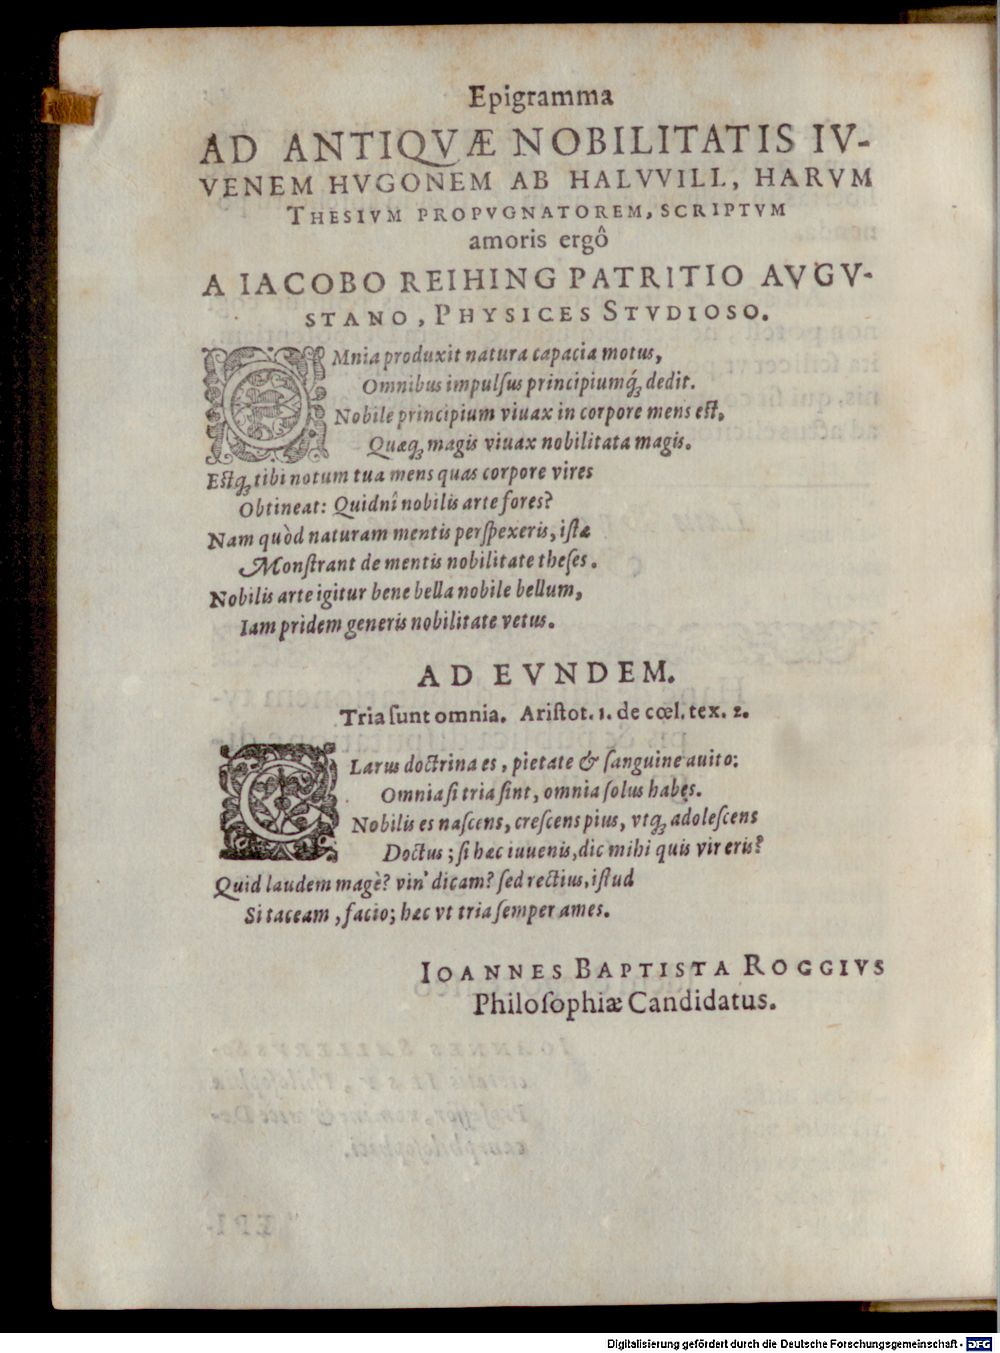 Epigramma
AD ANTIQVÆ NOBILITATIS IV-
VENEM HVGONEM AB HALVVILL, HARVM
THESIVM PROPVGNATOREM, SCRIPTVM
amoris ergô
A IACOBO REIHING PATRITIO AVGV-
STANO, PHYSICES STVDIOSO.
OMnia produxit natura capacia motus,
Omnibus impulſus principiumq́ꝫ dedit.
Nobile principium viuax in corpore mens eſt,
Quæqꝫ magis viuax nobilitata magis.
Eſtqꝫ tibi notum tua mens quas corpore vires
Obtineat: Quidnî nobilis arte fores?
Nam quòd naturam mentis perſpexeris, iſtæ
Monſtrant de mentis nobilitate theſes.
Nobilis arte igitur bene bella nobile bellum,
Iam pridem generis nobilitate vetus.
AD EVNDEM.
Tria ſunt omnia. Ariſtot. 1. de cœl. tex. 2.
CLarus doctrina es, pietate & ſanguine auito:
Omnia ſi tria ſint, omnia ſolus habes.
Nobilis es naſcens, creſcens pius, vtqꝫ adoleſcens
Doctus; ſi hæc iuuenis, dic mihi quis vir eris?
Quid laudem magè? vin' dicam? ſed rectius, iſtud
Si taceam, facio; hæc vt tria ſemper ames.
IOANNES BAPTISTA ROGGIVS
Philoſophiæ Candidatus.
Digitalisierung gefördert durch die Deutsche Forschungsgemeinschaft - DFG